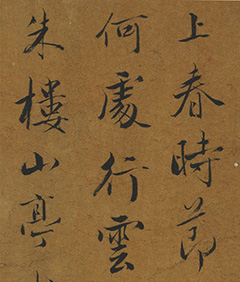 上春時節
何處行雲
朱樓山亭